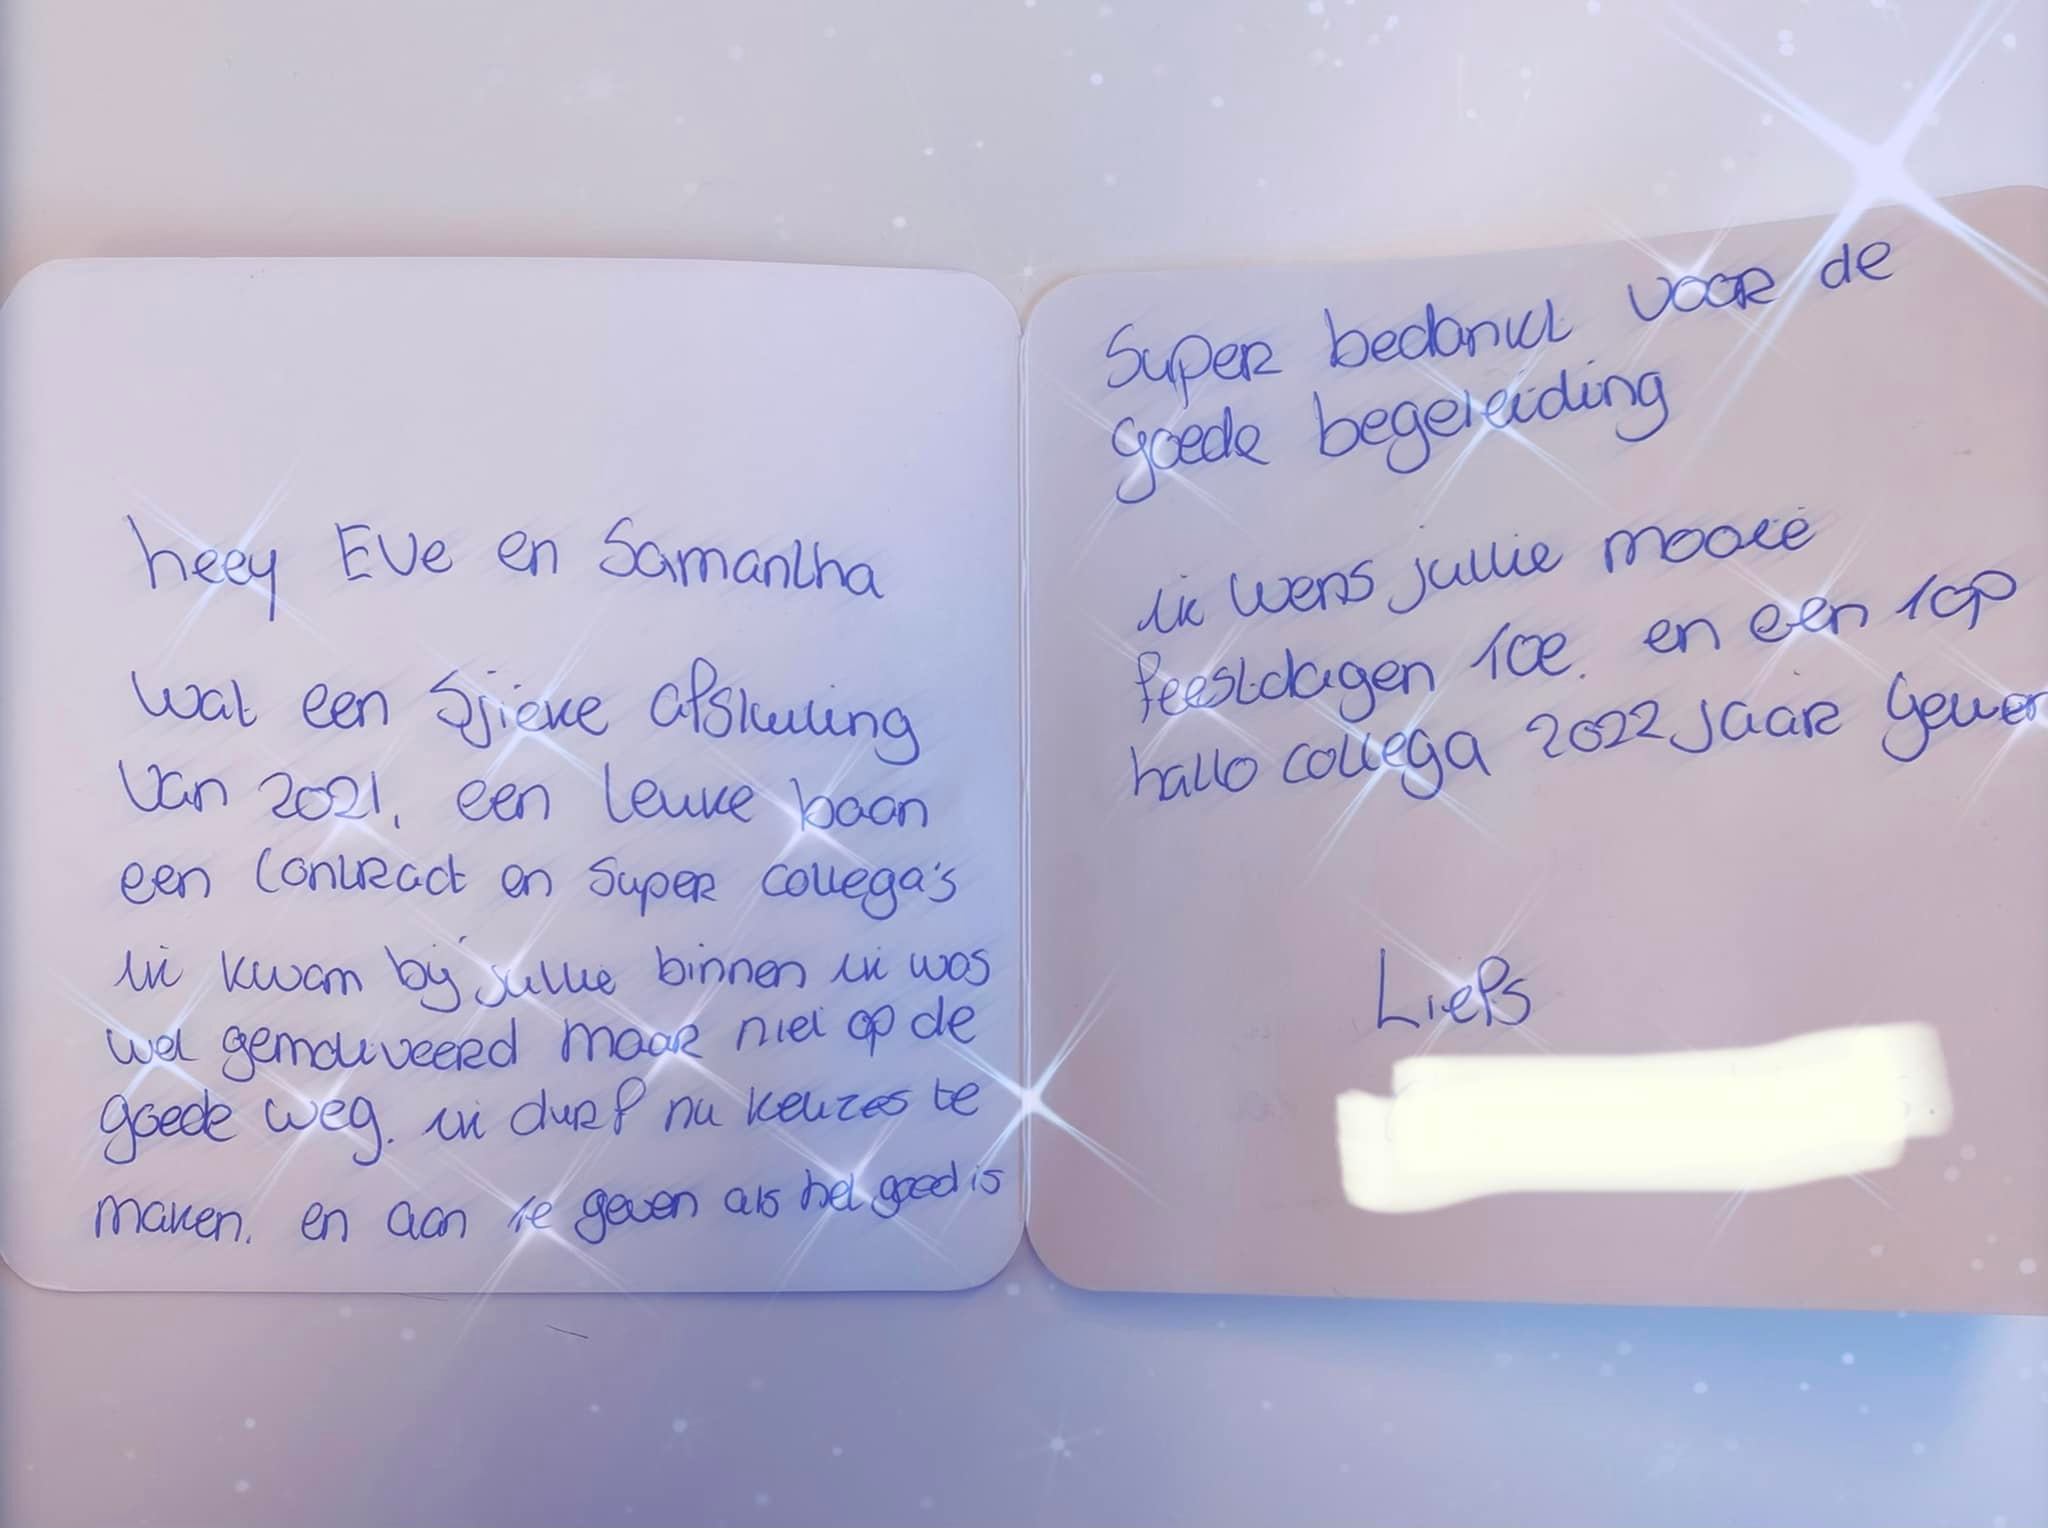 heey Eve en Samantha
Wat een Sjieke afsluiting
van 2021, een leuke baan
een contract en super collega's
ik kwam bij jullie binnen ik was
wel gemotiveerd maar niet op de
goede weg. ik durf nu keuzes te
maken. en aan te geven als het goed is
Super bedankt voor de
goede begeleiding
ik wens jullie mooie
feestdagen toe. en een top
hallo collega 2022 jaar
Liefs